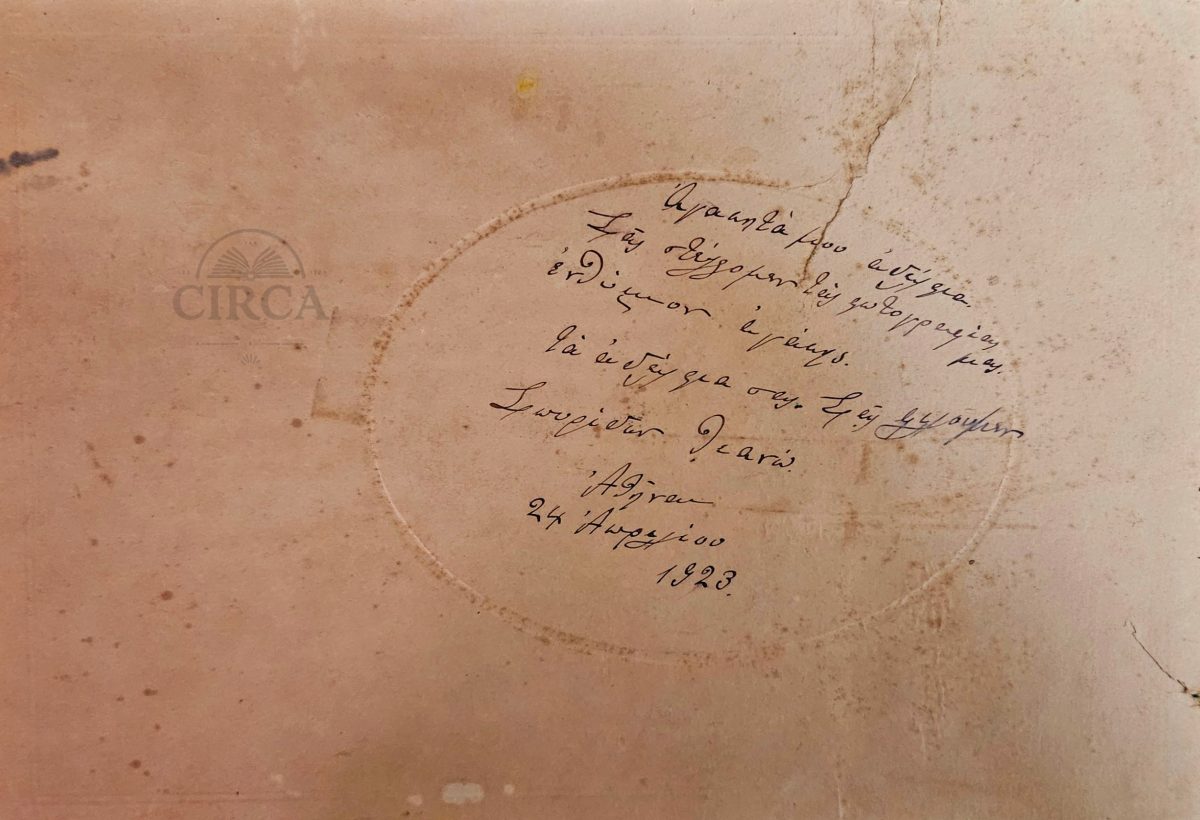 CIRCA
Ἀγαπητά μου ἀδέλφια
Σᾶς στέλλομεν τὰς φωτογραφίας
μας.
ἐνθύμιον ἀγάπης.
τὰ ἀδέλφια σας. Σᾶς φιλοῦμεν
Σπυρίδων Θεανώ
Ἀθῆναι
24 Ἀπριλίου
1923.